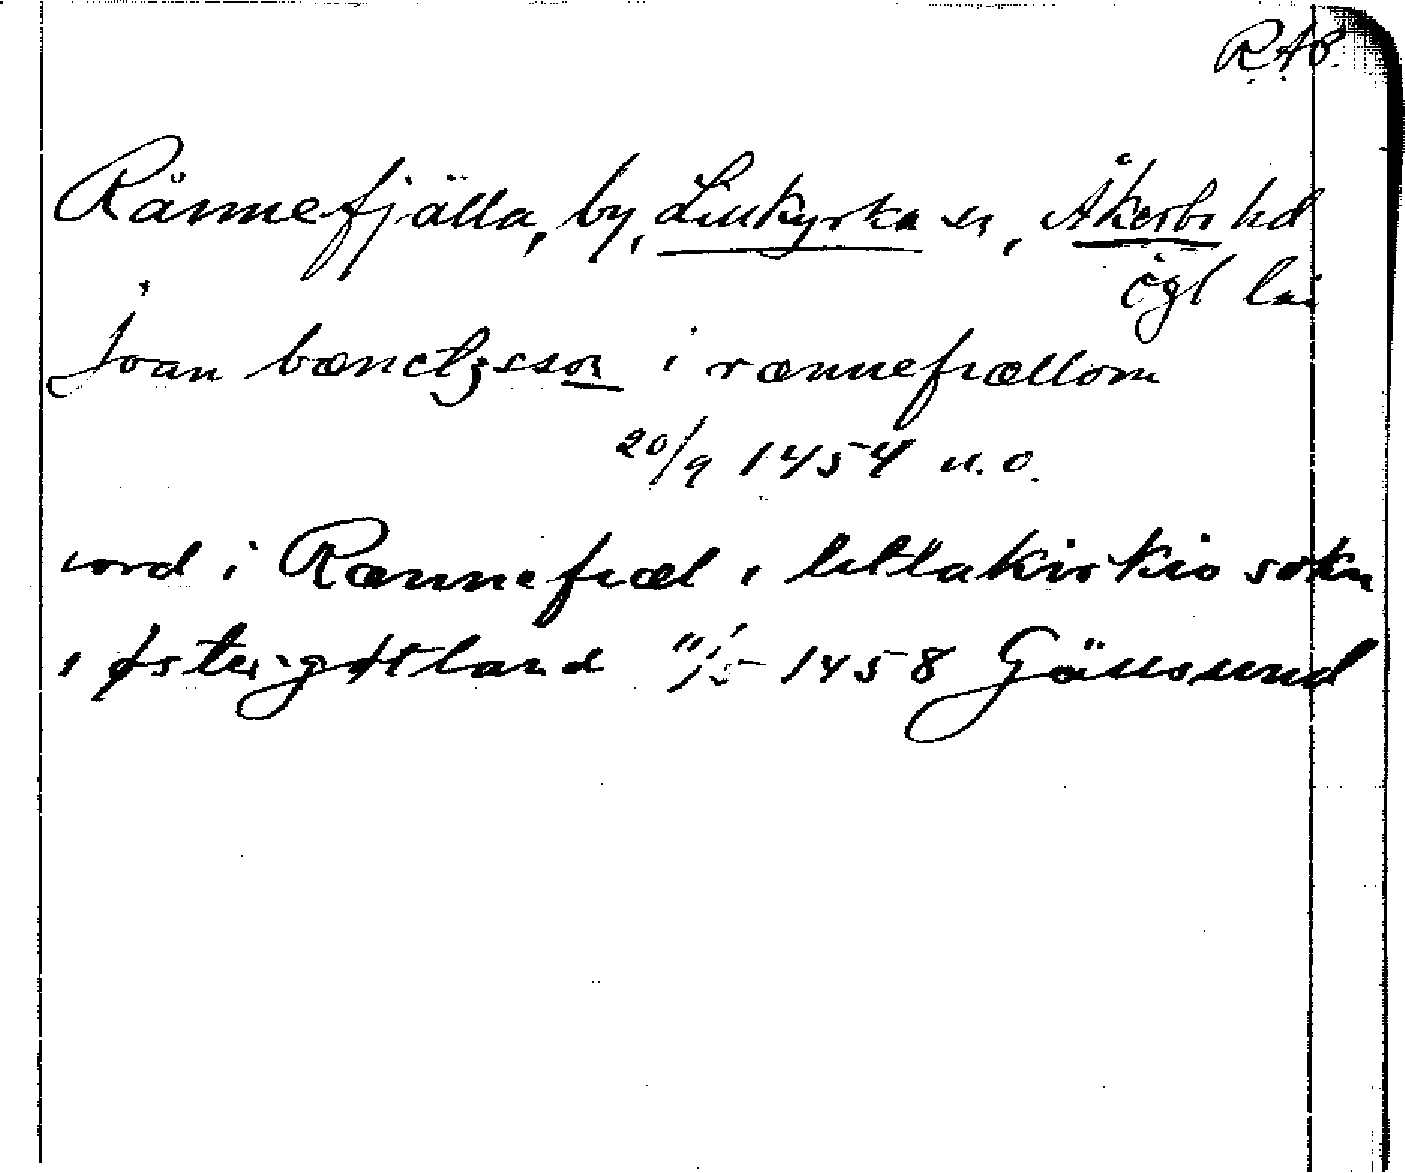 RAP.
Rännefjälla, by, Linkyrka sn, Åkerbo hd
ögl län
Joan bænctzsson i rænnefiællom
20/9 1454 u.o.
iord i Rænnefiæl i lillakirkio sokn
i østergøtland 11/5 1458 Gäusund